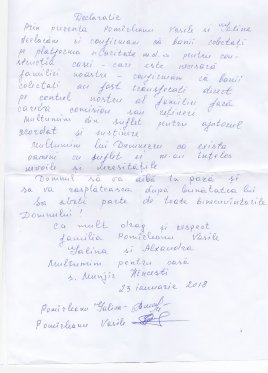 Declaratie
Prin prezenta Pomîrleanu Vasile si Galina
declaram si confirmam ca banii colectati
pe platforma caritate md. pentru con-
structia casei - care este necesară
familiei noastre - confirmam ca banii
colectati au fost transferati direct
pe contul nostru al familiei fără
careva comision sau retinere
Multumim din suflet pentru ajutorul
acordat si sustinere
Multumim lui Dumnezeu ca exista
oameni cu suflet ce ne-au înteles
nevoile si necesitatile
Domnul să va aibă în pază si
sa va rasplateasca după bunatatea lui
Sa aveti parte de toate binecuvîntarile
Domnului!
Cu mult drag si respect
familia Pomîrleanu Vasile
Galina si Alexandra
Multumim pentru casă
s. Mungir Hîncesti
23 ianuarie 2018
Pomîrleanu Galina
Pomîrleanu Vasile